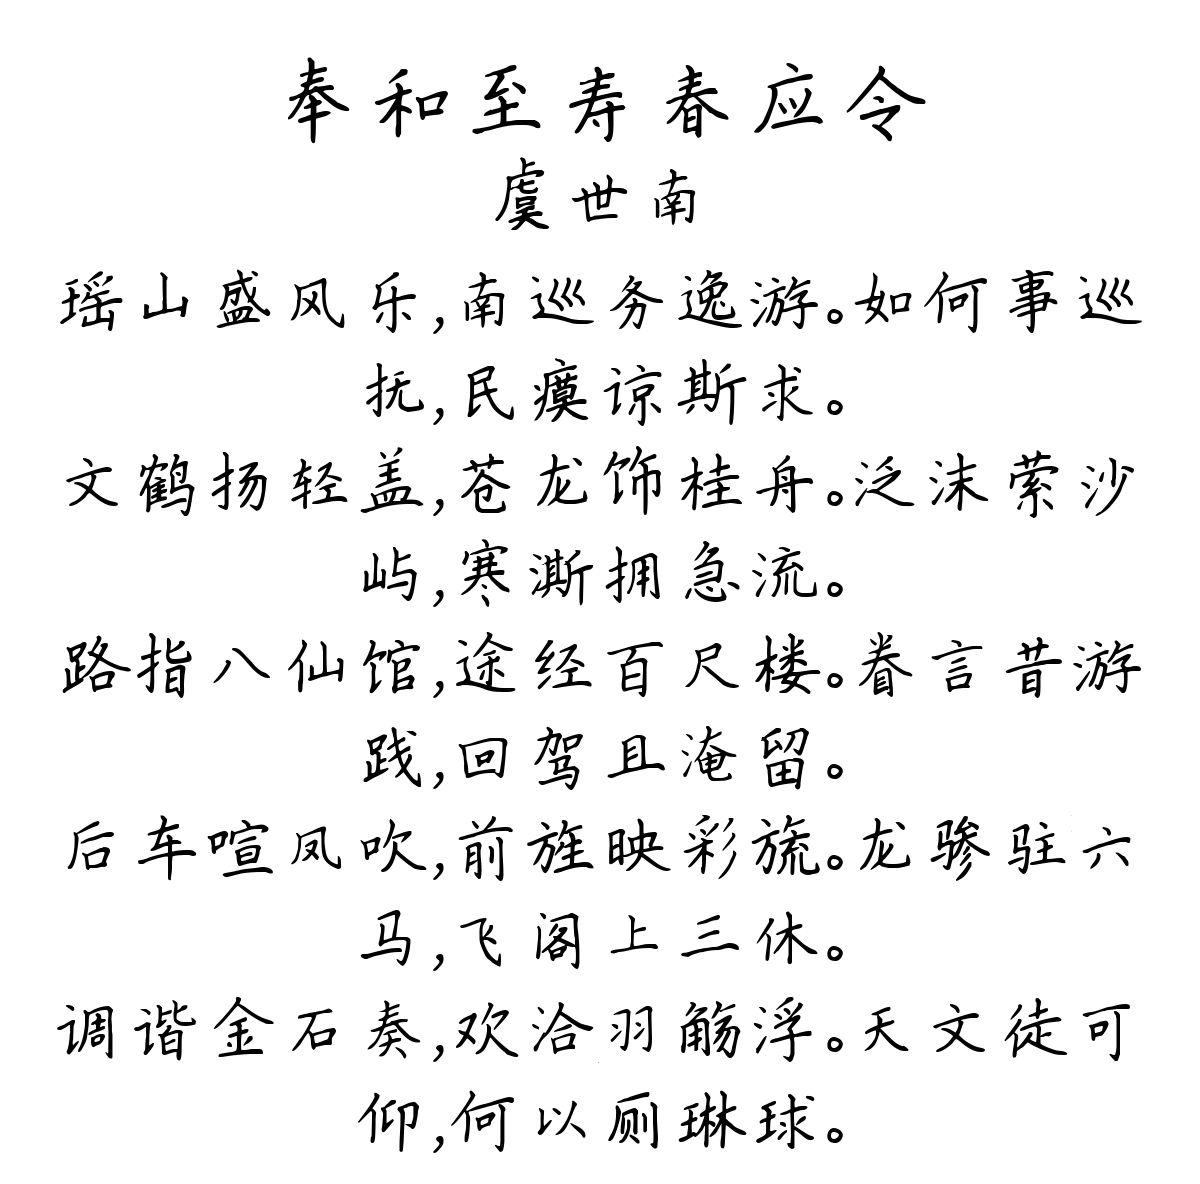 奉和至寿春应令
虞世南
瑶山盛风乐,南巡务逸游。如何事巡
抚,民瘼谅斯求。
文鹤扬轻盖,苍龙饰桂舟。泛沫萦沙
屿,寒澌拥急流。
路指八仙馆,途经百尺楼。眷言昔游
践,回驾且淹留。
后车喧凤吹,前旌映彩旒。龙骖驻六
马,飞阁上三休。
调谐金石奏,欢洽羽觞浮。天文徒可
仰,何以厕琳球。